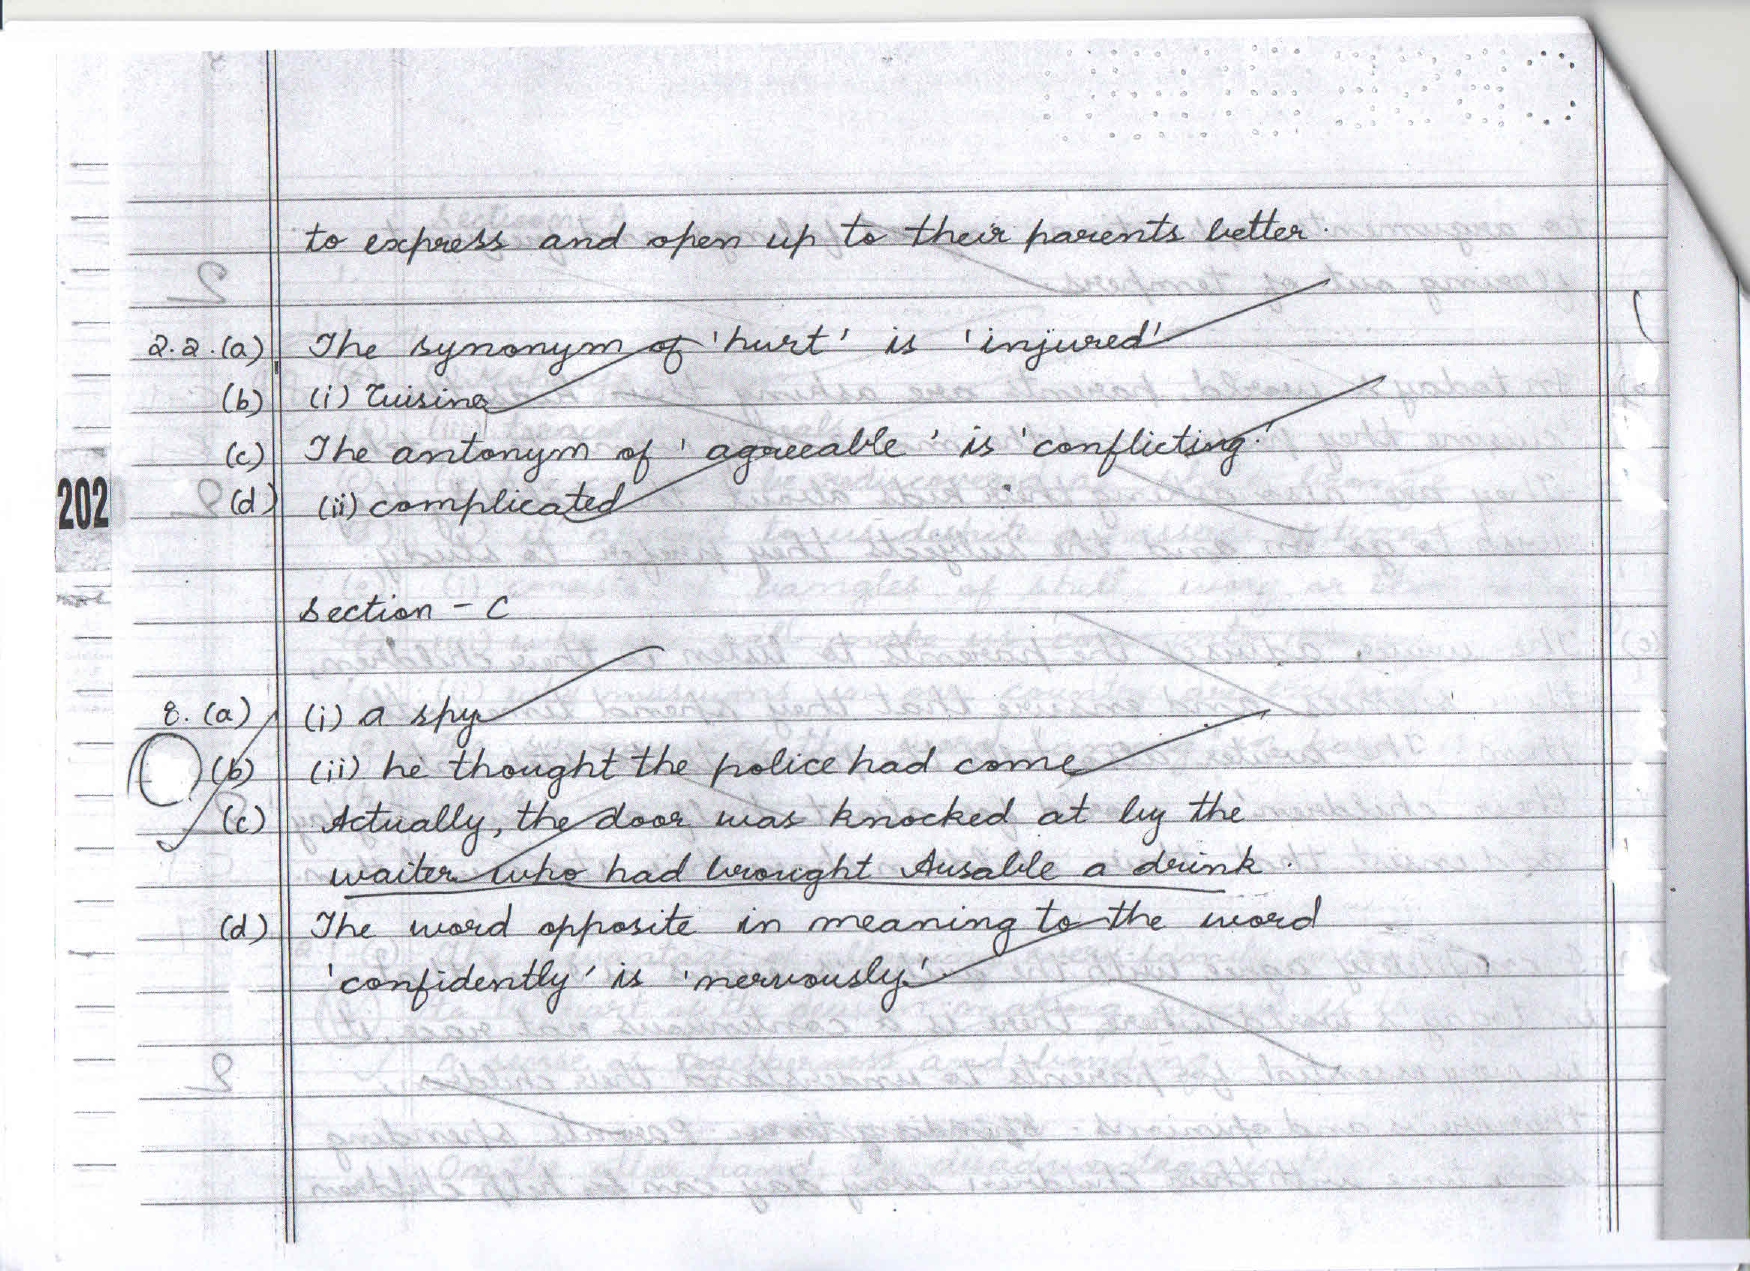 to express and open up to their parents better.
2.2.(a) The synonym of 'hurt' is 'injured'
(b) (i) Cuising
(c) The antonym of 'agreeable' is 'conflicting.'
202
(d) (ii) complicated
Section - C
8. (a) (i) a spy
(b) (ii) he thought the police had come
(c) Actually, the door was knocked at by the
waiter who had brought Ausable a drink.
(d) The word opposite in meaning to the word
'confidently' is 'nervously'.